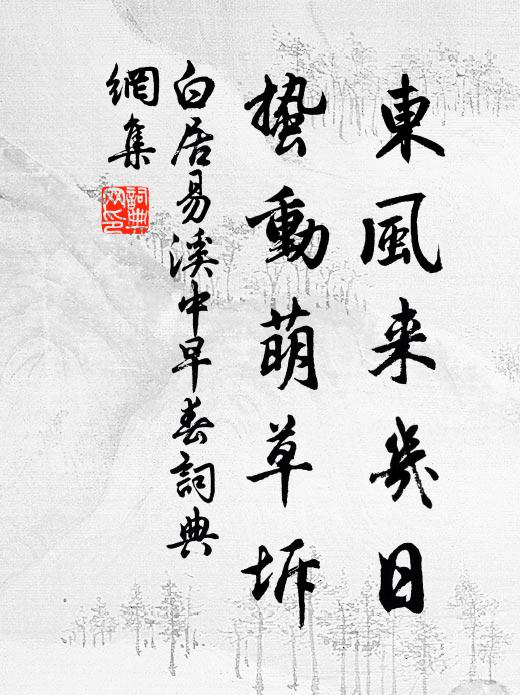 東風来幾日
蟄動萌草坼
白居易溪中早春詞典
網集
詞典网印